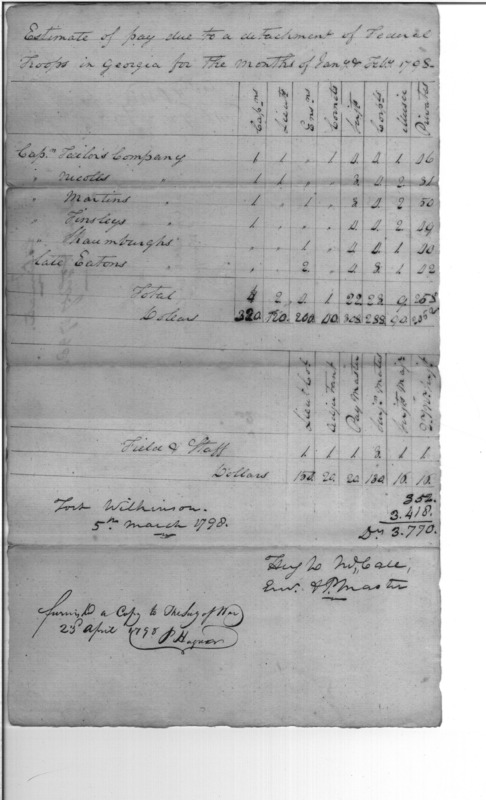 Estimate of pay due to a detachment of Federal
Troops in Georgia for the months of Jany & Feby 1798.
Capns Lieuts Ensns Cornets Sergts Corpls Music Privates
Capn Taylor's Company 1 1 . 1 4 4 1 46
" Nicolls " 1 1 . . 4 2 31
" Martins " 1 . 1 . 4 2 50
" Tinsleys " 1 . . . 4 4 2 49
" Shaumburghs . . 1 . 4 4 1 40
late Eatons " . . 2 . 4 8 1 42
Total 4 2 4 1 22 28 9 258
Dollars 320. 120. 200. 288 90
Lieut Col Adjutant Pay Master Surgs Mates Sergt Majr
Field & Staff 1 1 1 1 1
Dollars 150. 20. 20. 16. 16.
352.
3.418.
Drs 3.770.
Fort Wilkinson.
5th March 1798.
Hugh McCall,
Ensn & P. Master
furnish'd a Copy to the Secy of War
23d April 1798
P. Hagner